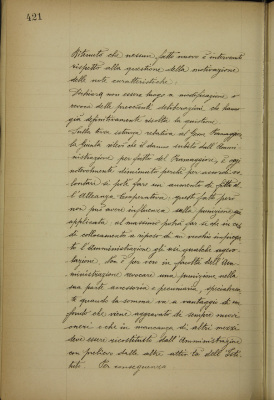 421
Ritenuto che nessun fatto nuovo è intervenuto
rispetto alla questione della notificazione
delle note caratteristiche.
Dichiara non essere luogo a modificazione o
revoca delle precedenti deliberazioni che hanno
già definitivamente risolta la questione.
Sulla terza istanza relativa al
la Giunta ritenne che il danno subito dall'Ammi-
nistrazione pel fatto del è oggi
notevolmente diminuito perchè per accordi vo-
lontari si potè fare un aumento di fitto al-
l'Alleanza Cooperativa: questo fatto però
non può avere influenza sulla punizione già
applicata al massimo potrà far sì che in caso
di collocamento a riposo di un vecchio impiega-
to l'Amministrazione gli usi qualche agevo-
lazione. Non è poi vero in facoltà dell'Am-
ministrazione revocare una punizione nella
sua parte accessoria e pecuniaria, specialmen-
te quando la somma va a vantaggio di un
fondo che viene aggravato da sempre nuovi
oneri e che in mancanza di altri mezzi
deve essere ricostituito dall'Amministrazione
con prelievo dalle altre attività dell'Isti-
tuto. Per conseguenza